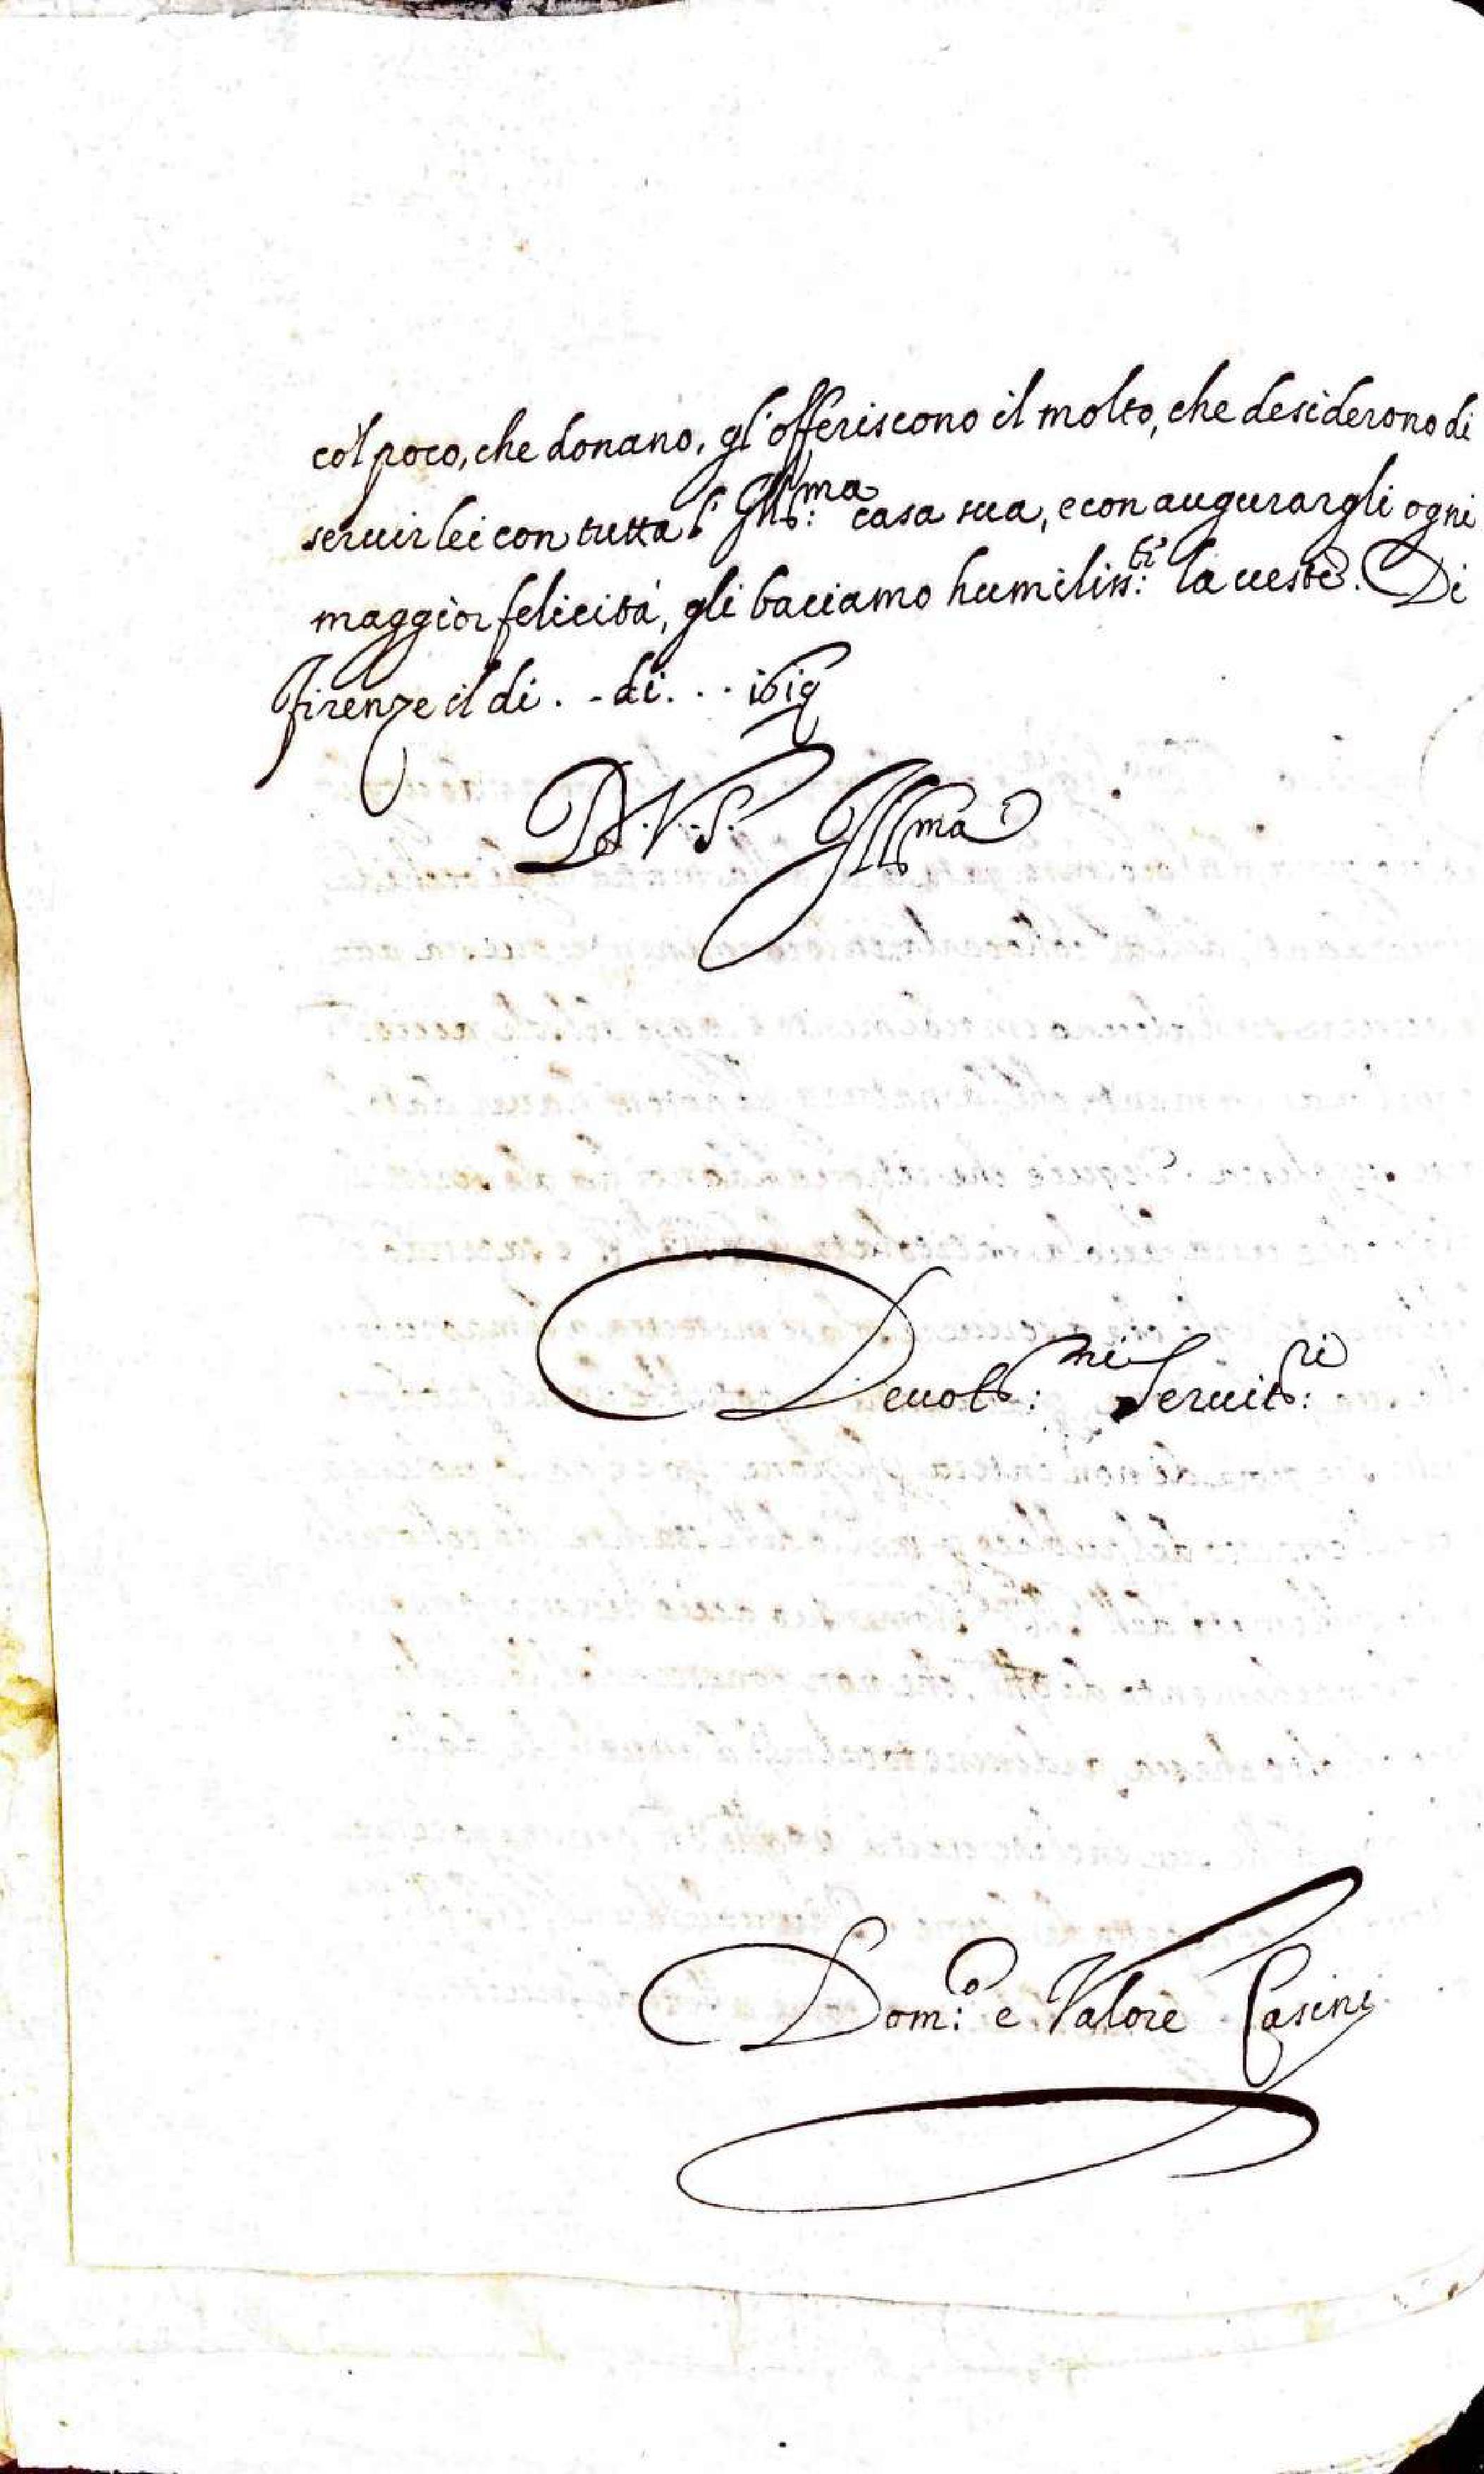 col poco, che donano, gl'offeriscono il molto, che desiderono di
seruir lei con tutta l' Ill.ma casa sua, e con augurargli ogni
maggior felicità, gli baciamo humiliss.te la ueste. Di
Firenze il di . . di . . . 1619
D. V. S. Ill.ma
Deuot.mi Seruit.ri
Dom.o e Valore Casini